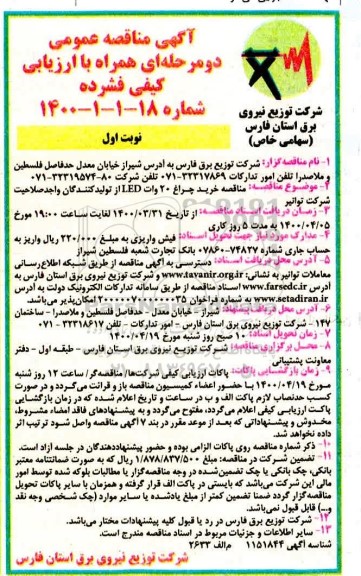 آگهی مناقصه عمومی
دومرحله‌ای همراه با ارزیابی
کیفی فشرده
شماره ۱۸-۱-۱-۱۴۰۰
نوبت اول
شرکت توزیع نیروی
برق استان فارس
(سهامی خاص)
۱- نام مناقصه‌گزار: شرکت توزیع برق فارس به آدرس شیراز خیابان معدل حدفاصل فلسطین
و ملاصدرا تلفن امور تدارکات ۳۲۳۱۷۸۶۹-۰۷۱ تلفن شرکت ۸۰-۳۲۳۱۹۵۷۴-۰۷۱
۲- موضوع مناقصه: مناقصه خرید چراغ ۲۰ وات LED از تولیدکنندگان واجدصلاحیت
شرکت توانیر
۳- زمان دریافت اسناد مناقصه: از تاریخ ۱۴۰۰/۰۳/۳۱ لغایت ساعت ۱۹:۰۰ مورخ
۱۴۰۰/۰۴/۰۵ به مدت ۵ روز کاری
۴- مدارک مورد نیاز جهت تحویل اسناد: فیش واریزی به مبلغ ۲۲۰/۰۰۰ ریال واریز به
حساب جاری شماره بانک تجارت شعبه فلسطین شیراز
۵- آدرس محل دریافت اسناد: دسترسی به آگهی مناقصه از طریق شبکه اطلاع‌رسانی
معاملات توانیر به نشانی: www.tavanir.org.ir و شرکت توزیع نیروی برق استان فارس به
آدرس www.farsedc.ir اسناد مناقصه از طریق سامانه تدارکات الکترونیک دولت به آدرس
www.setadiran.ir به شماره فراخوان امکان‌پذیر می‌باشد.
۶- آدرس محل دریافت پیشنهاد: شیراز - خیابان معدل - حدفاصل فلسطین و ملاصدرا - ساختمان
۱۴۷ - شرکت توزیع نیروی برق استان فارس - امور تدارکات - تلفن ۳۲۳۱۸۶۱۷-۰۷۱
۷- زمان تحویل اسناد: ۱۰ صبح روز شنبه مورخ ۱۴۰۰/۰۴/۱۹
۸- محل برگزاری مناقصه: شرکت توزیع نیروی برق استان فارس - طبقه اول - دفتر
معاونت پشتیبانی
۹- زمان بازگشایی پاکات: پاکات ارزیابی کیفی شرکت‌ها/مناقصه‌گر/ ساعت ۱۲ روز شنبه
مورخ ۱۴۰۰/۰۴/۱۹ با حضور اعضاء کمیسیون مناقصه باز و قرائت می‌گردد و در صورت
کسب حدنصاب لازم پاکت الف و ب در ساعت و تاریخ اعلام شده که در زمان بازگشایی
پاکت ارزیابی کیفی اعلام می‌گردد، مفتوح می‌گردد و به پیشنهادهای فاقد امضاء مشروط،
مخدوش و پیشنهاداتی که بعد از موعد مقرر در بند ۷ آگهی مناقصه واصل شود ترتیب اثر
داده نخواهد شد.
۱۰- ذکر شماره مناقصه روی پاکات الزامی بوده و حضور پیشنهاددهندگان در جلسه آزاد است.
۱۱- تضمین شرکت در مناقصه: مبلغ ۱/۸۷۸/۸۳۷/۵۰۰ ریال که به صورت ضمانتنامه معتبر
بانکی، چک بانکی یا چک تضمین‌شده در وجه مناقصه‌گزار یا مطالبات بلوکه شده توسط امور
مالی این شرکت می‌باشد که بایستی در پاکت الف قرار گرفته و همزمان با سایر پاکات تحویل
مناقصه‌گزار گردد ضمنا تضمین کمتر از مبلغ یادشده یا سایر موارد (چک شخصی وجه نقد
و...) قابل قبول نمی‌باشد.
۱۲- شرکت توزیع برق فارس در رد یا قبول کلیه پیشنهادات مختار می‌باشد.
۱۳- سایر اطلاعات و جزئیات مربوط در اسناد مناقصه مندرج است.
شناسه آگهی ۱۱۵۱۸۴۴ م‌الف ۲۶۳۳
شرکت توزیع نیروی برق استان فارس